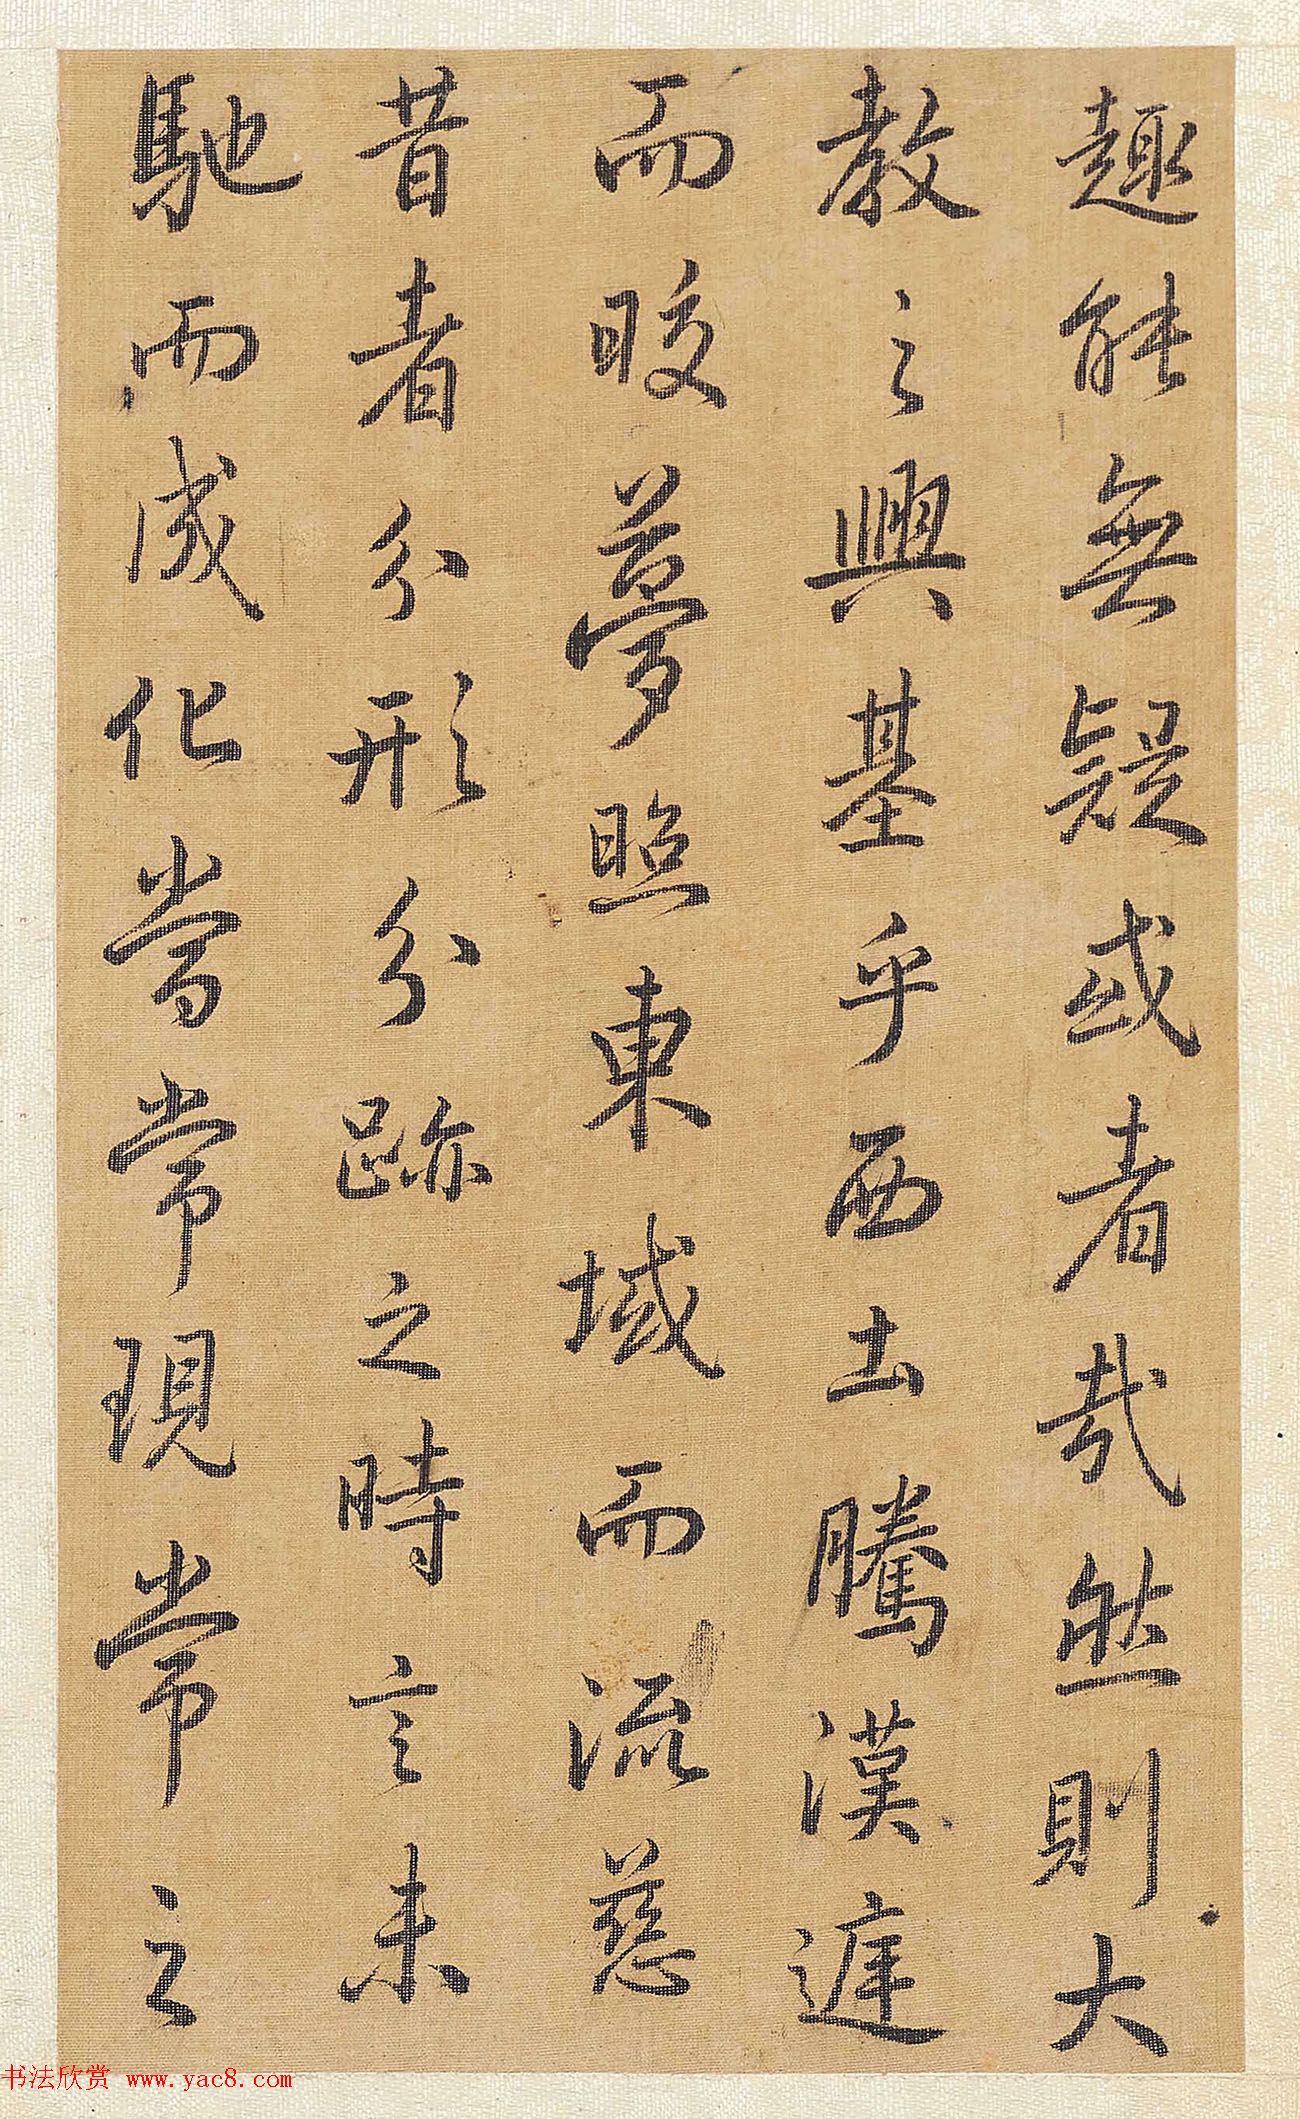 趣能無疑或者哉然則大
教之興基乎西土騰漢遅
而晈夢照東域而流慈
昔者分形分跡之時言未
馳而成化當常現常之
书法欣赏 www.yac8.com